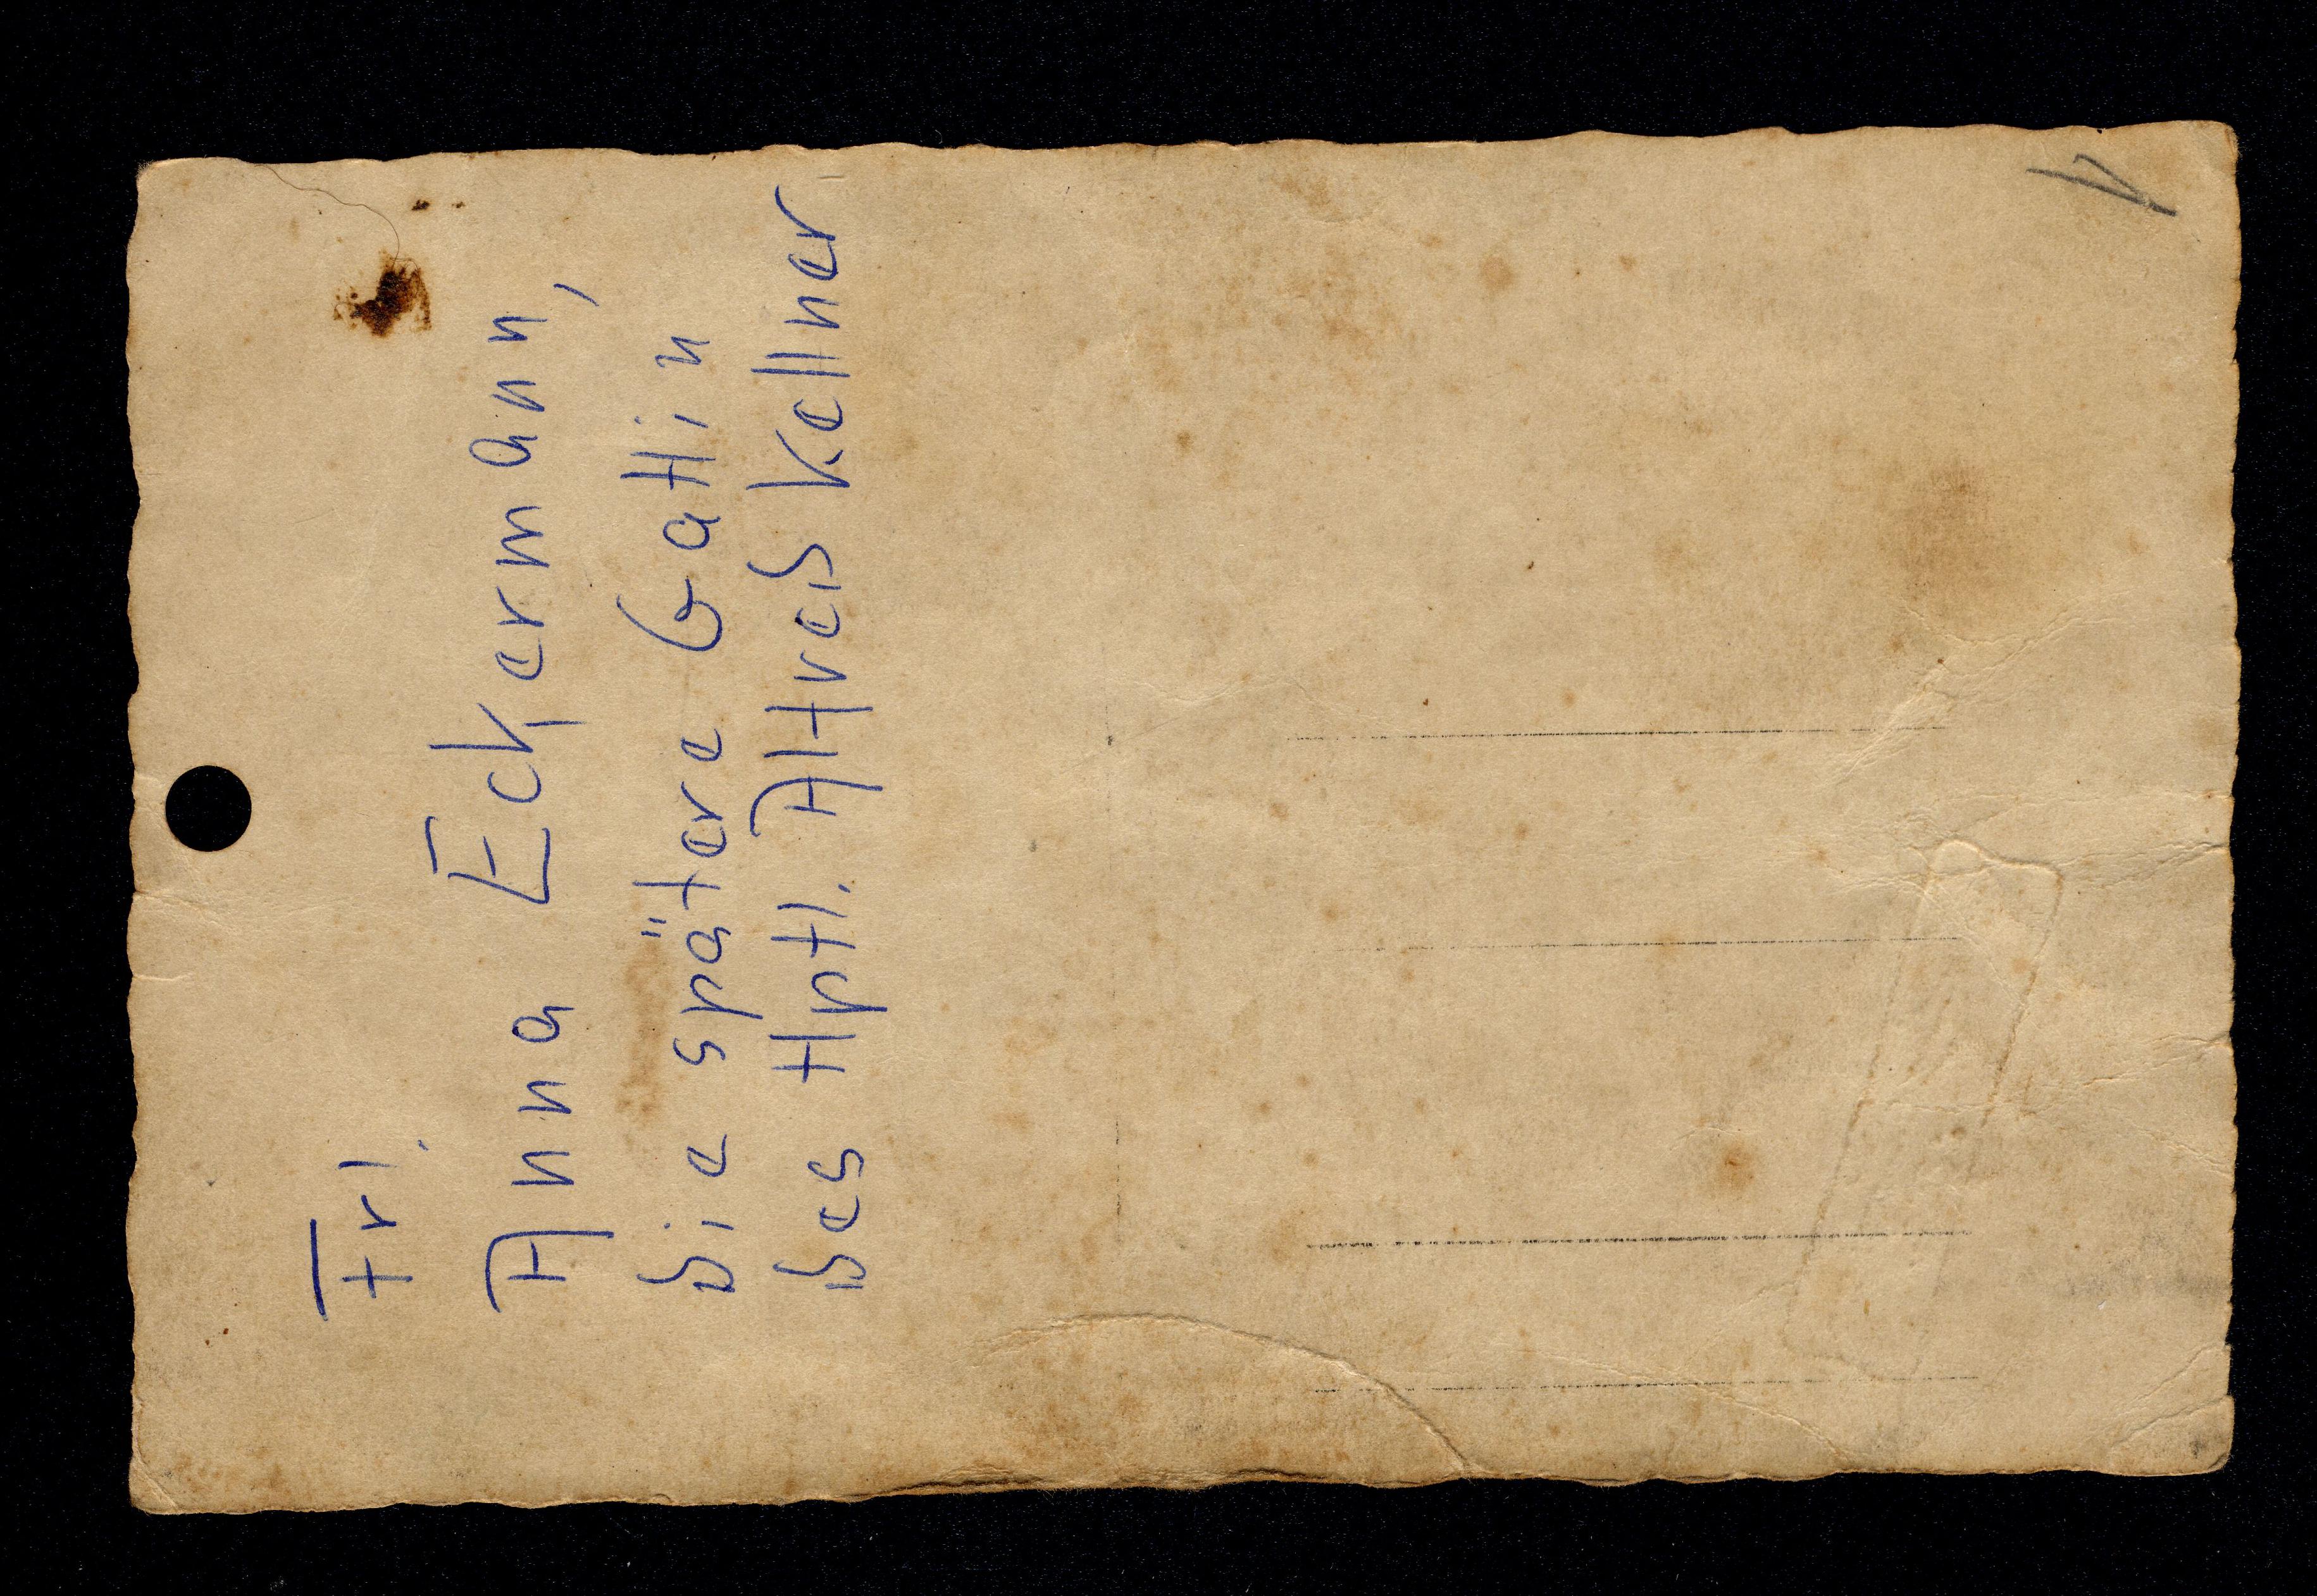 Frl.
Anna Eckermann,
die spätere Gattin
des Hptl. Alfred Kellner